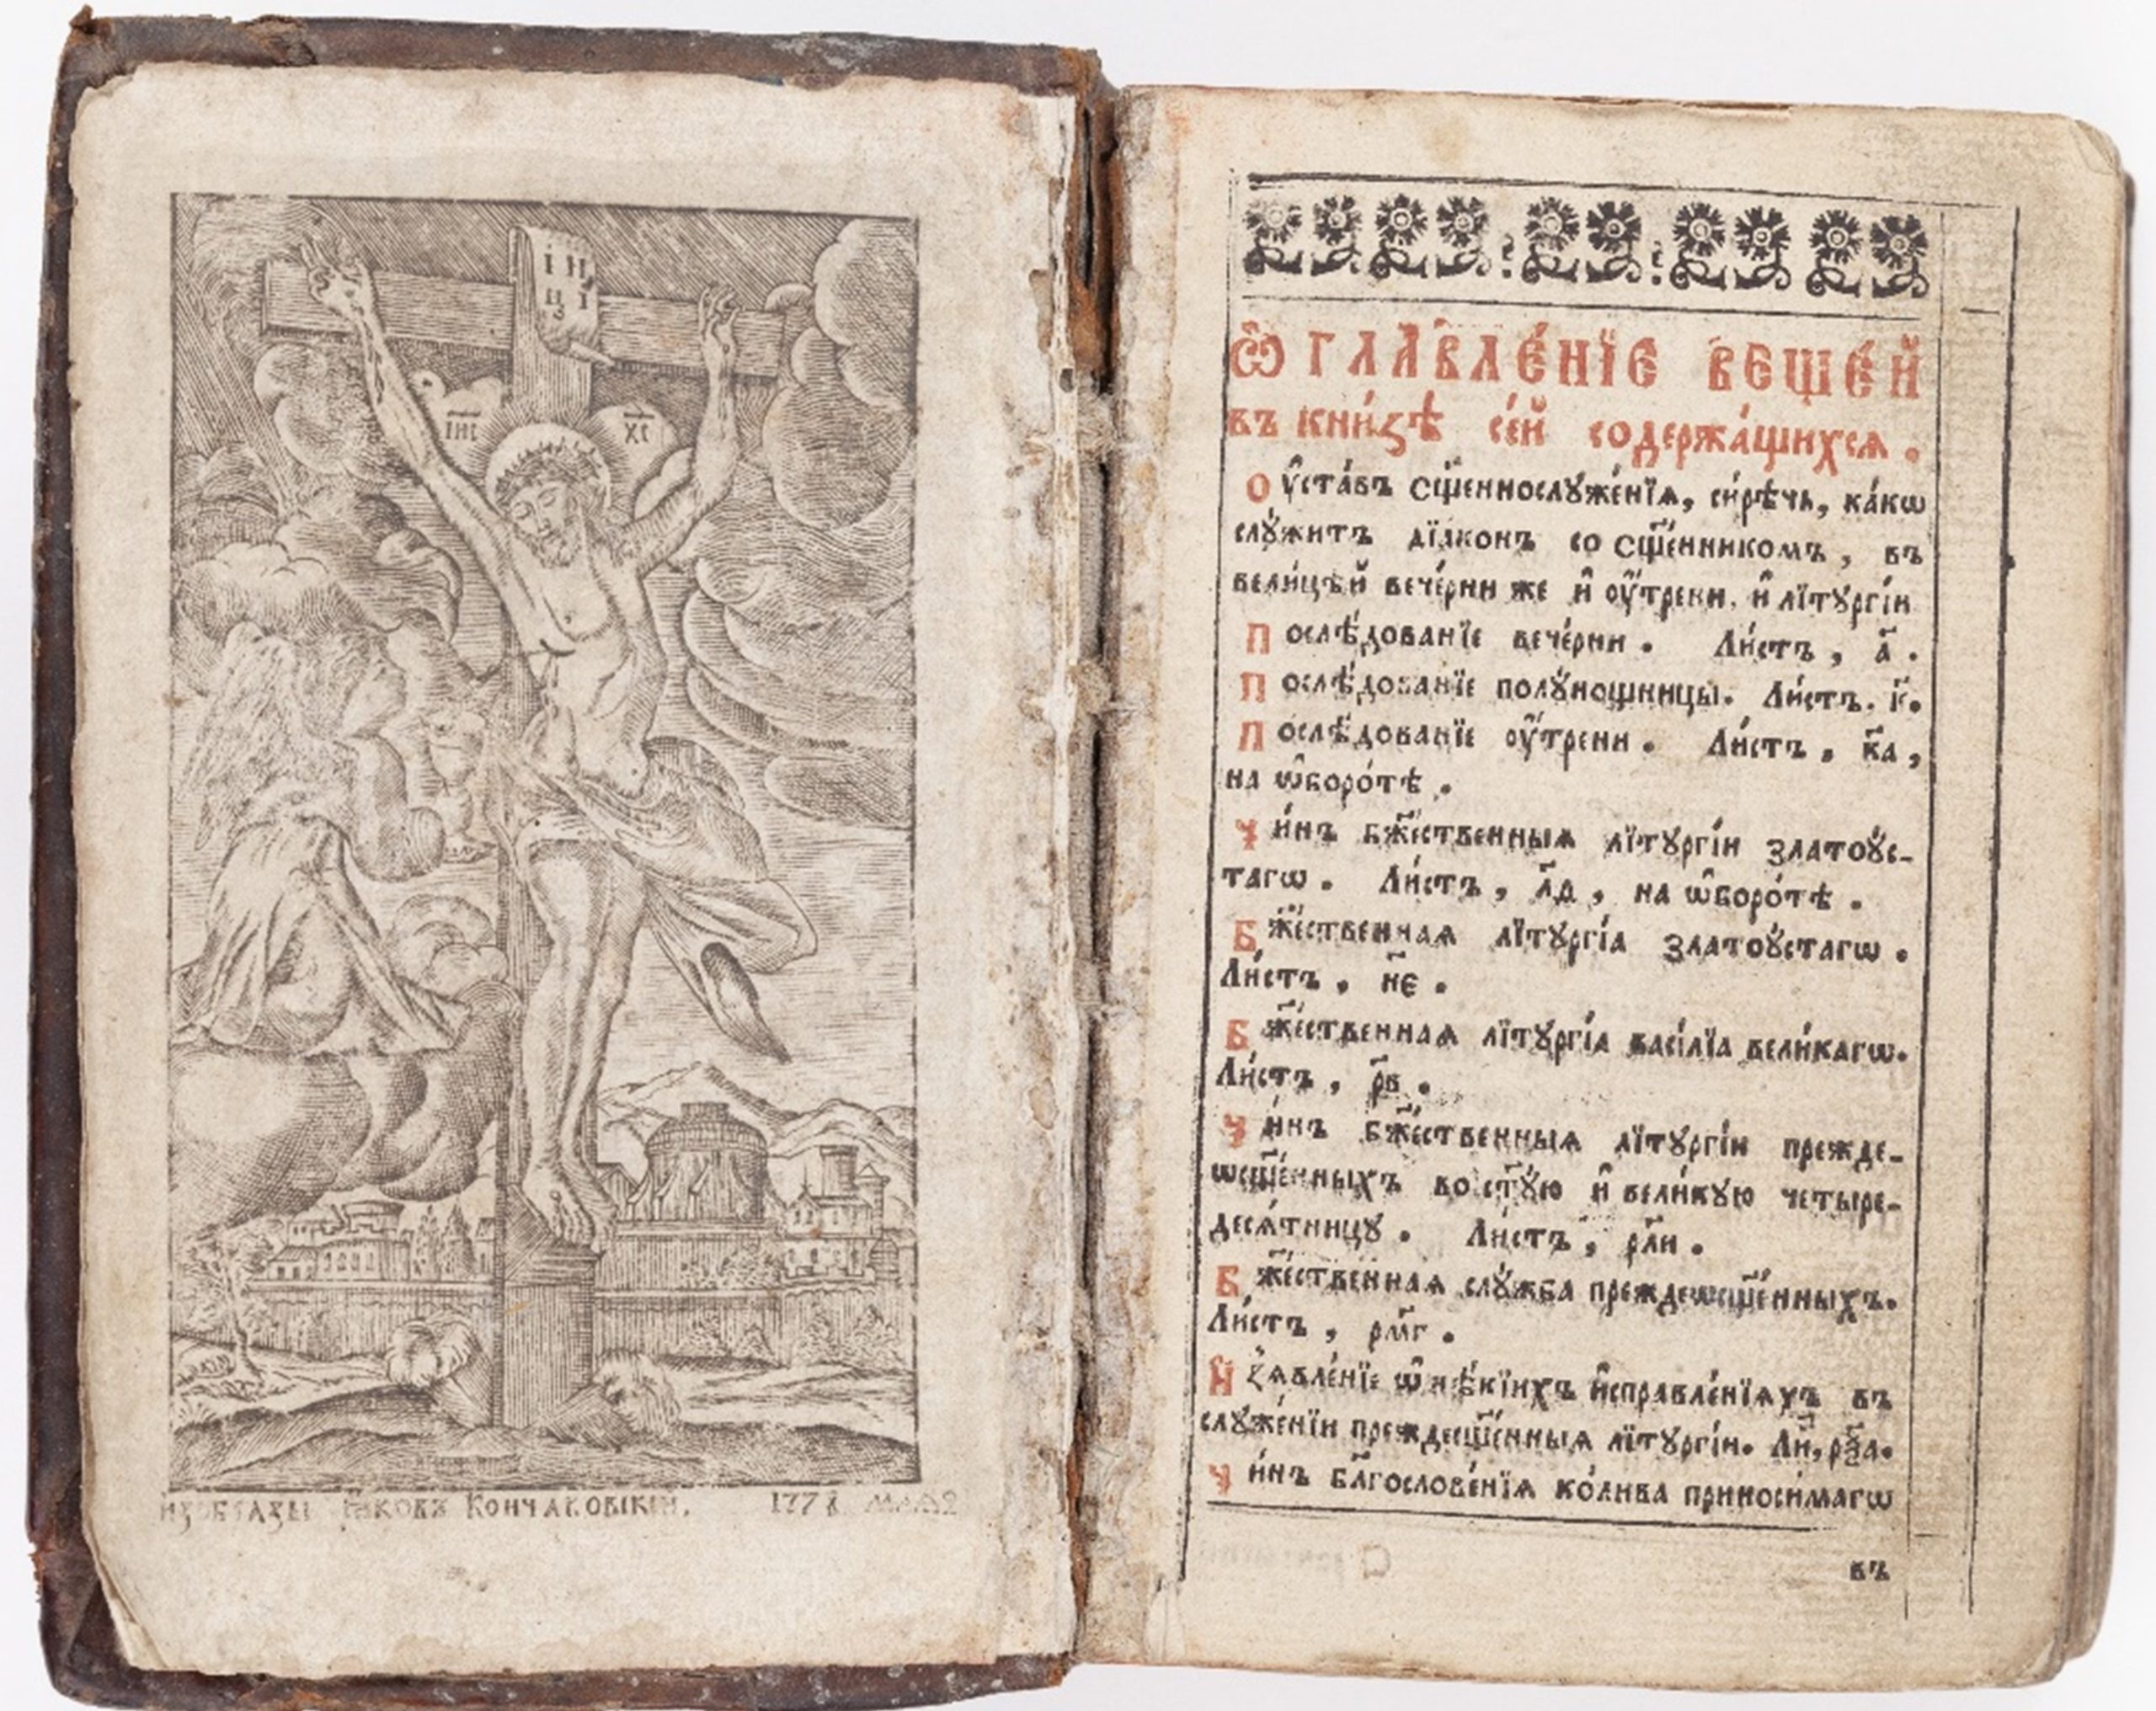 І Н
Ц І
І҃ИС Х҃С
Іаковъ Кончаковскїй. 177
Ѡ҆ГЛАВЛЕ́НЇЕ ВЕЩЕ́Й
въ кни́зѣ се́й содержа́щихсѧ .
Оу҆ста́въ сщ҃еннослꙋже́нїѧ, си́рѣчь, ка́кѡ
слꙋ́житъ дїа́конъ со сщ҃е́нникомъ , въ
вели́цѣй вече́рни же и҆ оу҆́трени, и҆ лїтꙋргі́и
Послѣ́дованїе вече́рни . Ли́стъ , а҃ .
Послѣ́дованїе полꙋ́нощницы. Ли́стъ.
Послѣ́дованїе оу҆́трени . Ли́стъ , к҃а ,
на ѡ҆боро́тѣ .
Чи́нъ бж҃е́ственныѧ лїтꙋргі́и златоꙋ́с-
тагѡ . Ли́стъ , л҃д , на ѡ҆боро́тѣ .
Бж҃е́ственнаѧ лїтꙋргі́а златоꙋ́стагѡ .
Ли́стъ , н҃є .
Бж҃е́ственнаѧ лїтꙋргі́а васі́лїа вели́кагѡ.
Ли́стъ , р҃в .
Чи́нъ бж҃е́ственныѧ лїтꙋргі́и прежде-
ѡсщ҃е́нныхъ во ст҃ꙋ́ю и҆ вели́кꙋю четыре-
десѧ́тницꙋ . Ли́стъ , рл҃и .
Бж҃е́ственнаѧ слꙋ́жба преждеѡсщ҃е́нныхъ.
Ли́стъ , рм҃г .
И҆з̾ѧвле́нїе ѡ҆ нѣ́кїихъ и҆справле́нїѧхъ въ
слꙋже́нїи преждесщ҃е́нныѧ лїтꙋргі́и. Ли́, рѯ҃а.
Чи́нъ бл҃гослове́нїѧ ко́лива приноси́магѡ
въ